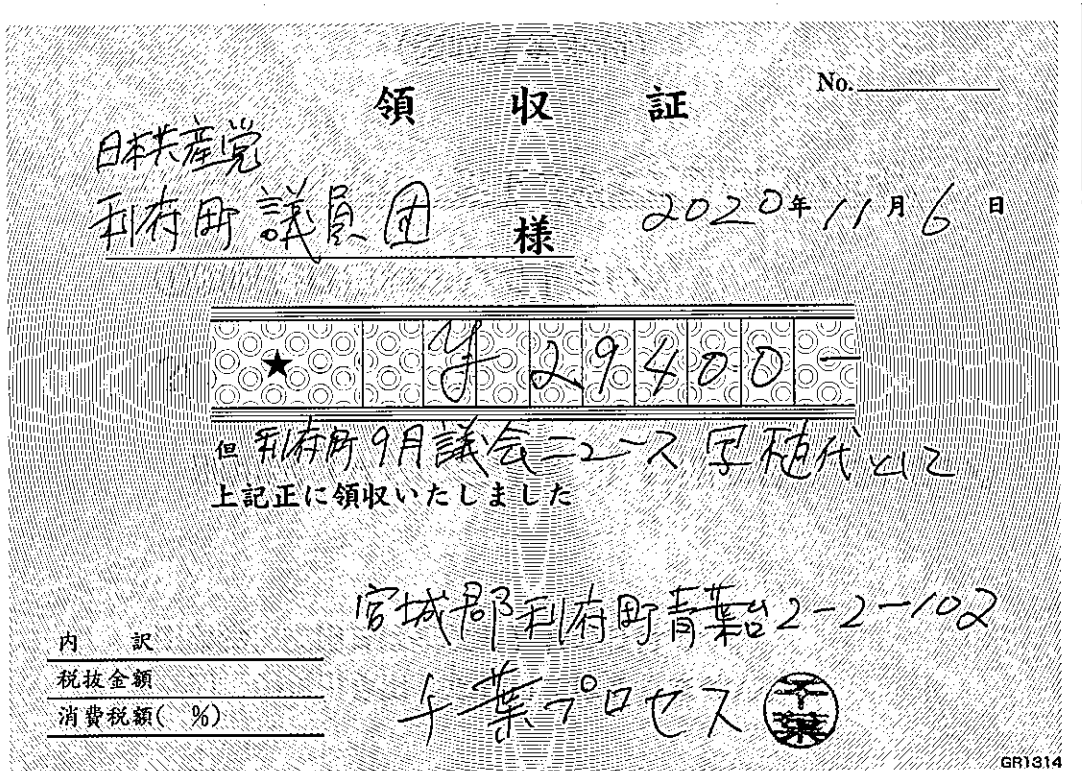 領収証
No.
日本共産党
利府町議員団 様
2020年11月6日
★ ¥29400-
但 利府町9月議会ニュース 写植代として
上記正に領収いたしました
宮城郡利府町青葉台2-2-102
千葉プロセス 千葉
内訳
税抜金額
消費税額( %)
GR1314